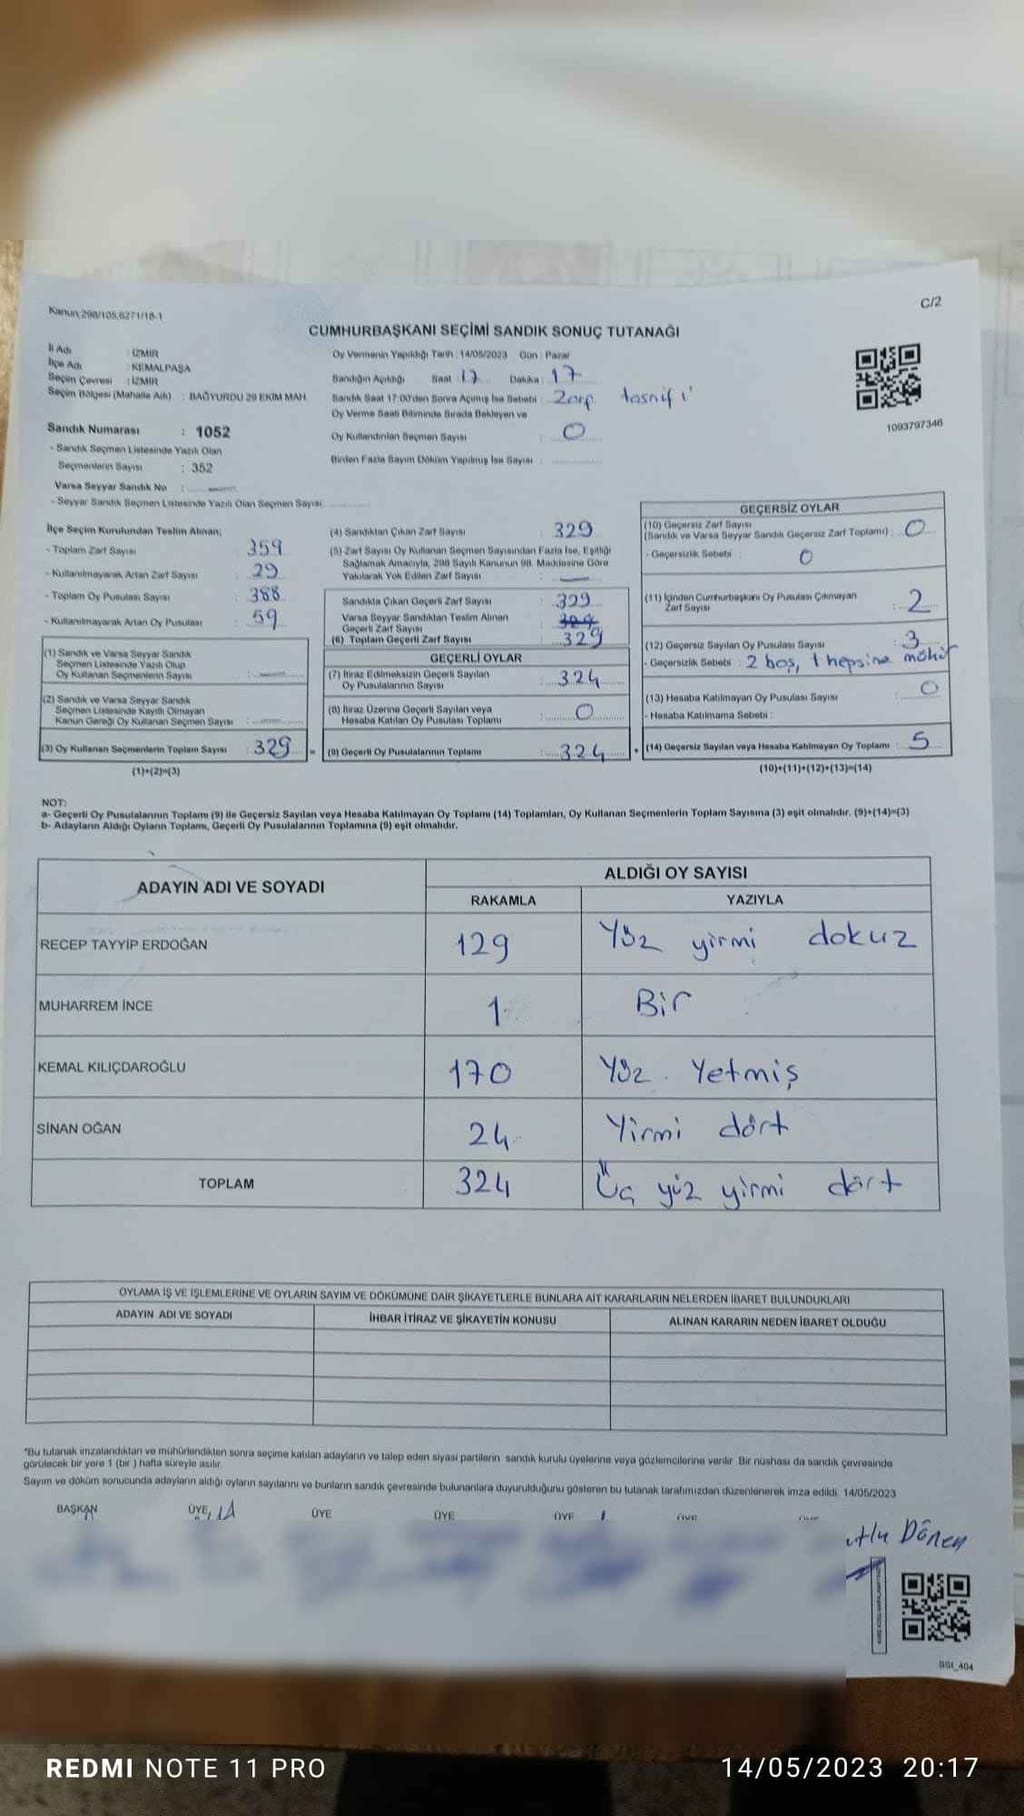 Kanun;298/105,6271/16-1
C/2
CUMHURBAŞKANI SEÇİMİ SANDIK SONUÇ TUTANAĞI
İl Adı : İZMİR
İlçe Adı : KEMALPAŞA
Seçim Çevresi : İZMİR
Seçim Bölgesi (Mahalle Adı) : BAĞYURDU 29 EKİM MAH.
Oy Vermenin Yapıldığı Tarih : 14/05/2023 Gün : Pazar
Sandığın Açıldığı Saat : 17 Dakika : 17
Sandık Saat 17:00'den Sonra Açılmış İse Sebebi : Zarf tasnifi
Oy Verme Saati Bitiminde Sırada Bekleyen ve
Oy Kullandırılan Seçmen Sayısı : 0
Birden Fazla Sayım Döküm Yapılmış İse Sayısı :
1093797346
Sandık Numarası : 1052
- Sandık Seçmen Listesinde Yazılı Olan
Seçmenlerin Sayısı : 352
Varsa Seyyar Sandık No :
- Seyyar Sandık Seçmen Listesinde Yazılı Olan Seçmen Sayısı:
İlçe Seçim Kurulundan Teslim Alınan;
- Toplam Zarf Sayısı : 359
- Kullanılmayarak Artan Zarf Sayısı : 29
- Toplam Oy Pusulası Sayısı : 388
- Kullanılmayarak Artan Oy Pusulası : 59
(1) Sandık ve Varsa Seyyar Sandık
Seçmen Listesinde Yazılı Olup
Oy Kullanan Seçmenlerin Sayısı :
(2) Sandık ve Varsa Seyyar Sandık
Seçmen Listesinde Kayıtlı Olmayan
Kanun Gereği Oy Kullanan Seçmen Sayısı :
(3) Oy Kullanan Seçmenlerin Toplam Sayısı : 329
(1)+(2)=(3)
(4) Sandıktan Çıkan Zarf Sayısı : 329
(5) Zarf Sayısı Oy Kullanan Seçmen Sayısından Fazla İse, Eşitliği
Sağlamak Amacıyla, 298 Sayılı Kanunun 98. Maddesine Göre
Yakılarak Yok Edilen Zarf Sayısı :
Sandıkta Çıkan Geçerli Zarf Sayısı : 329
Varsa Seyyar Sandıktan Teslim Alınan
Geçerli Zarf Sayısı :
(6) Toplam Geçerli Zarf Sayısı : 329
GEÇERLİ OYLAR
(7) İtiraz Edilmeksizin Geçerli Sayılan
Oy Pusulalarının Sayısı : 324
(8) İtiraz Üzerine Geçerli Sayılan veya
Hesaba Katılan Oy Pusulası Toplamı : 0
(9) Geçerli Oy Pusulalarının Toplamı : 324
GEÇERSİZ OYLAR
(10) Geçersiz Zarf Sayısı
(Sandık ve Varsa Seyyar Sandık Geçersiz Zarf Toplamı) : 0
- Geçersizlik Sebebi : 0
(11) İçinden Cumhurbaşkanı Oy Pusulası Çıkmayan
Zarf Sayısı : 2
(12) Geçersiz Sayılan Oy Pusulası Sayısı : 3
- Geçersizlik Sebebi : 2 boş, 1 hepsine mühür
(13) Hesaba Katılmayan Oy Pusulası Sayısı : 0
- Hesaba Katılmama Sebebi :
(14) Geçersiz Sayılan veya Hesaba Katılmayan Oy Toplamı : 5
(10)+(11)+(12)+(13)=(14)
NOT:
a- Geçerli Oy Pusulalarının Toplamı (9) ile Geçersiz Sayılan veya Hesaba Katılmayan Oy Toplamı (14) Toplamları, Oy Kullanan Seçmenlerin Toplam Sayısına (3) eşit olmalıdır. (9)+(14)=(3)
b- Adayların Aldığı Oyların Toplamı, Geçerli Oy Pusulalarının Toplamına (9) eşit olmalıdır.
ADAYIN ADI VE SOYADI
ALDIĞI OY SAYISI
RAKAMLA YAZIYLA
RECEP TAYYİP ERDOĞAN 129 Yüz yirmi dokuz
MUHARREM İNCE 1 Bir
KEMAL KILIÇDAROĞLU 170 Yüz Yetmiş
SİNAN OĞAN 24 Yirmi dört
TOPLAM 324 Üç yüz yirmi dört
OYLAMA İŞ VE İŞLEMLERİNE VE OYLARIN SAYIM VE DÖKÜMÜNE DAİR ŞİKAYETLERLE BUNLARA AİT KARARLARIN NELERDEN İBARET BULUNDUKLARI
ADAYIN ADI VE SOYADI İHBAR İTİRAZ VE ŞİKAYETİN KONUSU ALINAN KARARIN NEDEN İBARET OLDUĞU
*Bu tutanak imzalandıktan ve mühürlendikten sonra seçime katılan adayların ve talep eden siyasi partilerin sandık kurulu üyelerine veya gözlemcilerine verilir. Bir nüshası da sandık çevresinde
görülecek bir yere 1 (bir ) hafta süreyle asılır.
Sayım ve döküm sonucunda adayların aldığı oyların sayılarını ve bunların sandık çevresinde bulunanlara duyurulduğunu gösteren bu tutanak tarafımızdan düzenlenerek imza edildi. 14/05/2023
BAŞKAN ÜYE ÜYE ÜYE ÜYE
Dönen
SSI_404
REDMI NOTE 11 PRO
14/05/2023 20:17